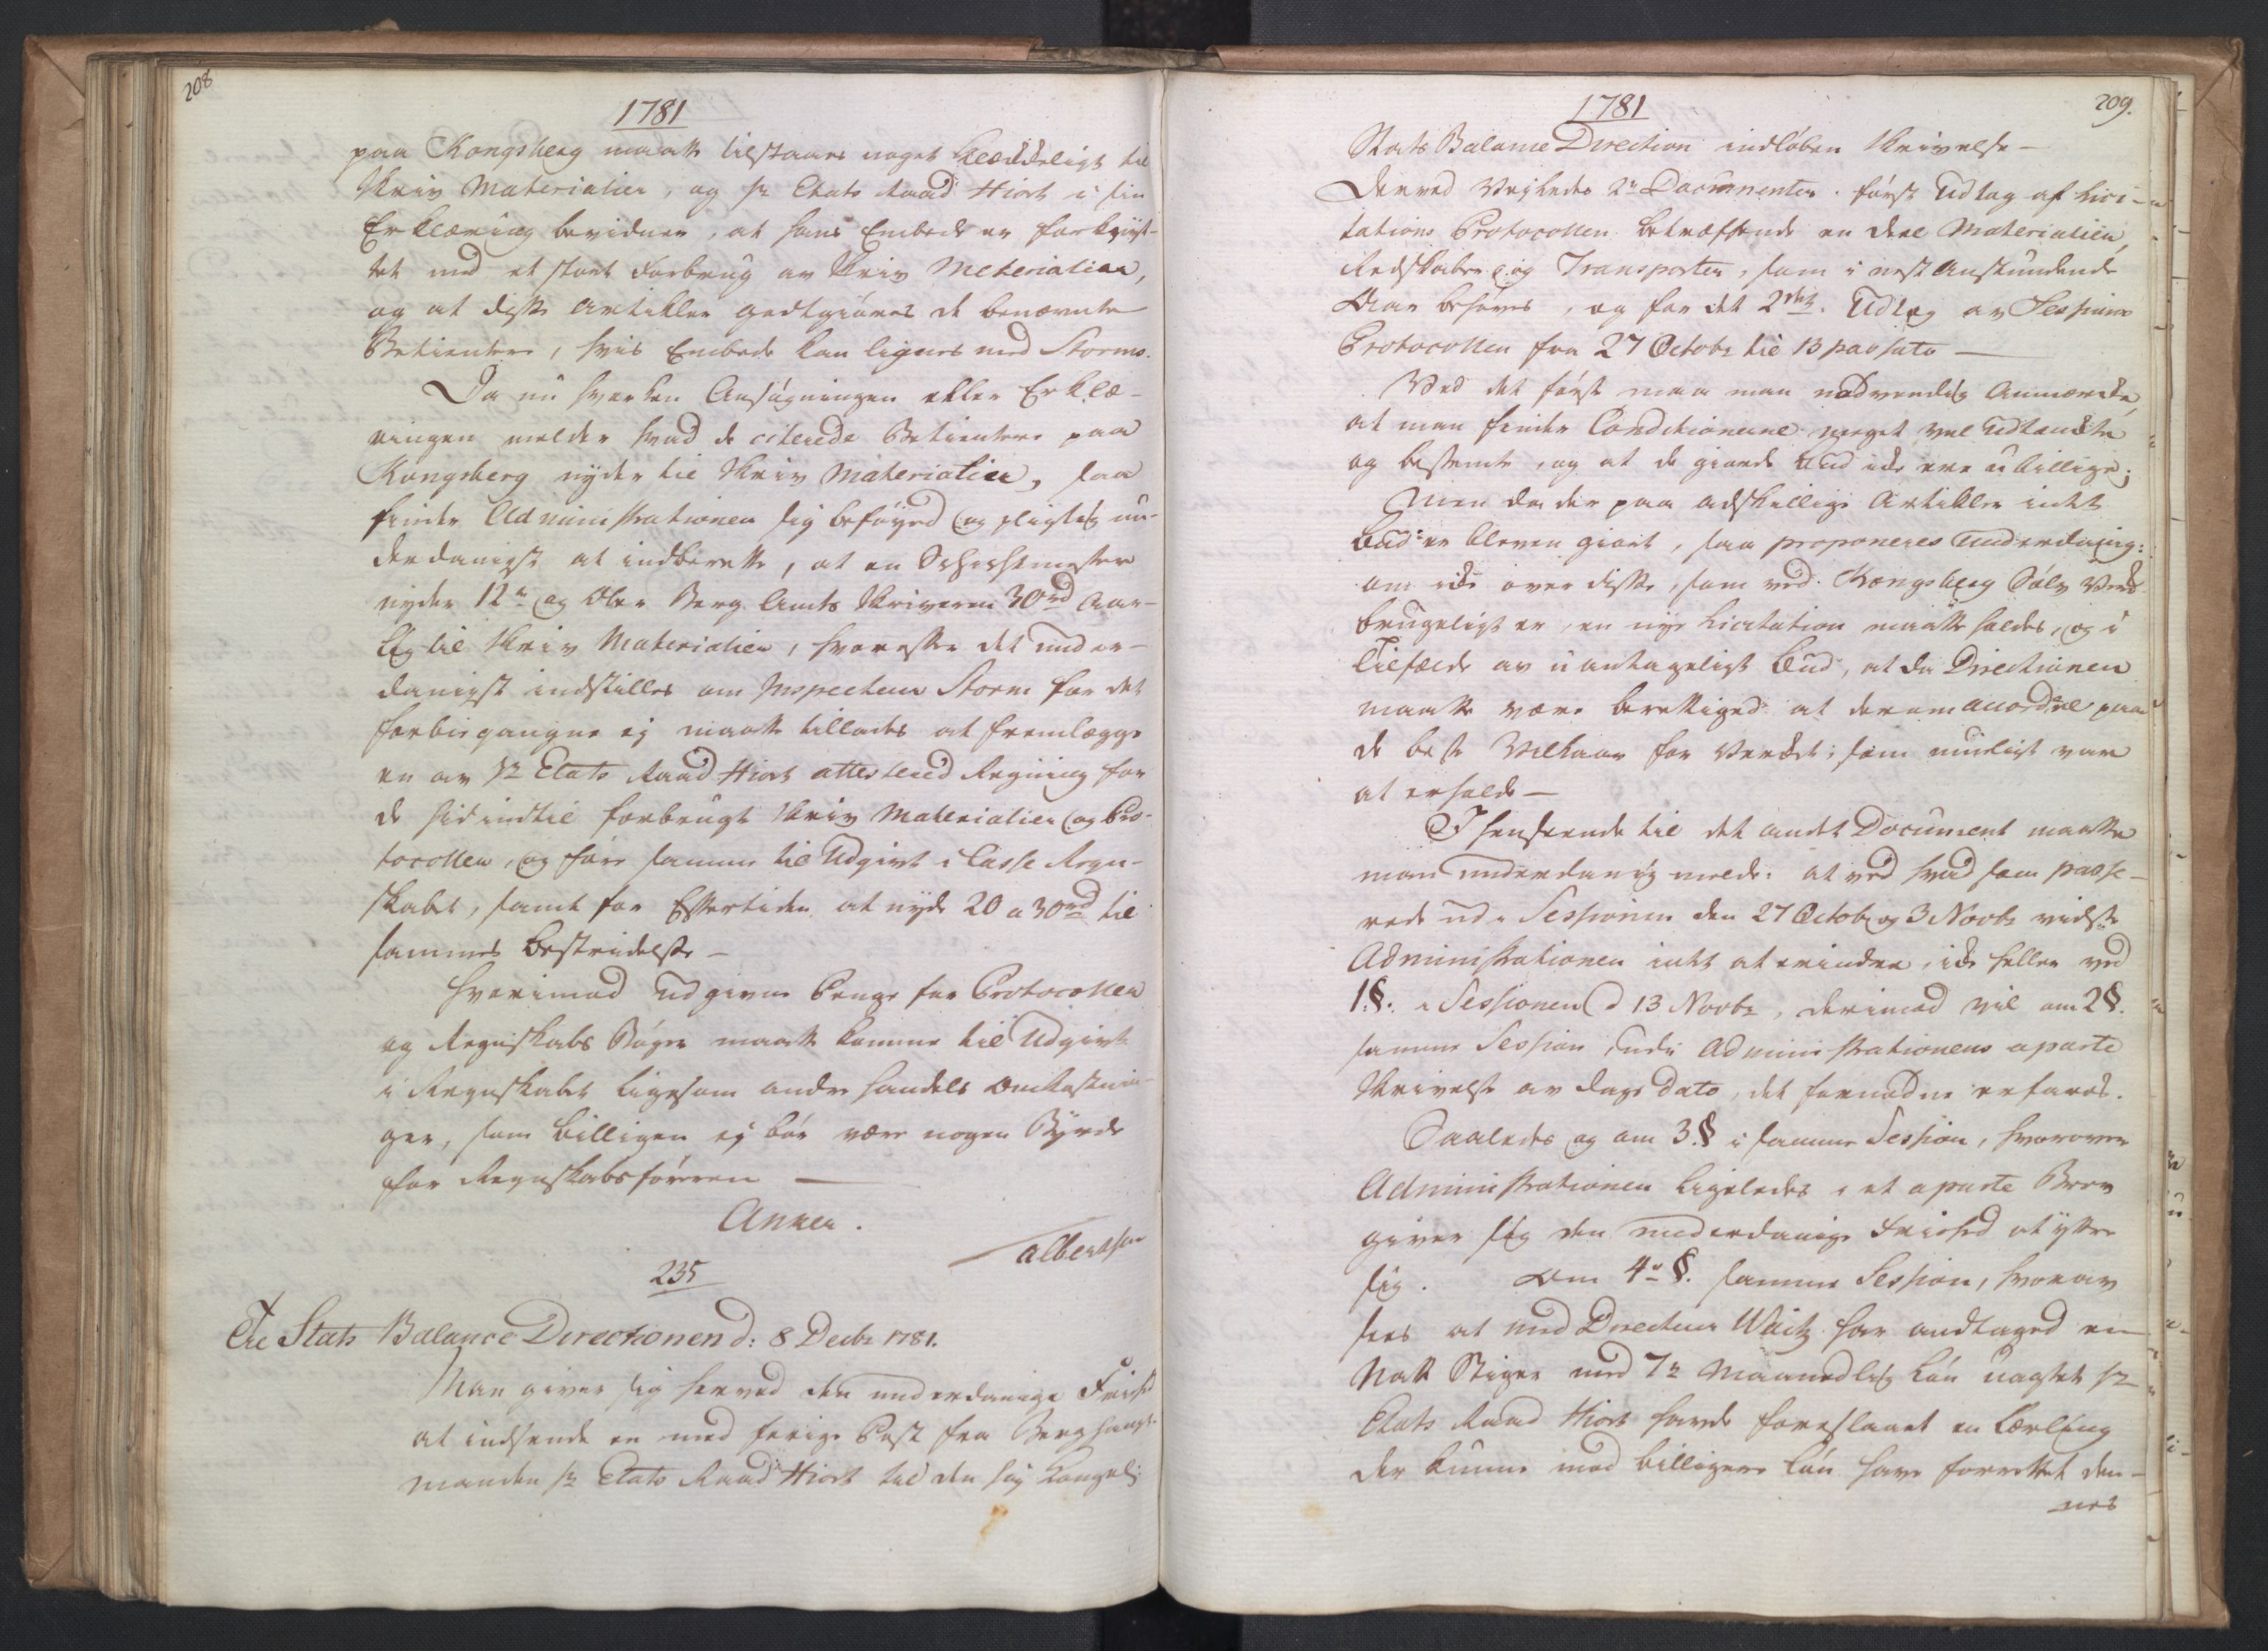 208
1781
paa Kongsberg maatte tilstaaes noget klækkeligt til
Skriv Materialier, og Hr Etats Raad Hiort i sin
Erklæring bevidner, at hans Embede er forknyt-
tet med et stort Forbrug av Skriv Meterialier,
og at disse Artikler godtgiøres de benævnte
Betientere, hvis Embede kan lignes med Storms.
Da nu hverken Ansøgningen eller Erklæ-
ringen melder hvad de citerede Betientere paa
Kongsberg nyder til Skriv Materialier, saa
finder Administrationen sig beføyed og pligtig un-
derdanigst at indberette, at en
nyder 12 og Ober Berg Amts Skriveren 30rd Aar-
lig til Skriv Materialier, hvorefter det under-
danigst indstilles om Inspecteur Storm for det
forbigangne ej maatte tillades at fremlægge
en av Hr Etats Raad Hiort attestered Regning for
de hidindtil forbrugte Skriv Materialier og Pro-
tocoller, og føre samme til Udgivt i Casse Regn-
skabet, samt for Eftertiden at nyde 20 a 30rd til
sammes bestridelse -
Hvorimod udgivne Penge for Protocoller
og Regnskabs Bøger maatte komme til Udgivt
i Regnskabet ligesom andre Handels Omkostnin-
ger, som billigen ej bør være nogen Byrde
for Regnskabsføreren —
Anker.
Albertsen
235
Til Stats Balance Directionen d: 8 Decbr 1781.
Man giver sig herved den underdanige Frihed
at indsende en med forige Post fra Berghaupt-
manden Hr Etats Raad Hiort til den høy Kongel:
1781
209.
Stats Balance Direction indløben Skrivelse -
Derved Vejledes 2de Documenter. først Udtog af Lici-
tations Protocollen betræffende en deel Materialier,
Redskaber og Transporter, som i nest Anstundende
Aar behøves, og for det 2det. Udtog av Sessions
Protocollen fra 27 Octobr til 13 passato —
Ved det første maa man nødvendig Anmærke,
at man finder Conditionerne meget vel Udtænkte
og bestemte, og at de giorde Bud icke ere ubillige;
Men da der paa adskillige Artikler intet
Bud er bleven giort, saa proponeres underdanig:
om icke over disse, som ved Kongsberg Sølv Verk
brugeligt er, en nye Licitation maatte holdes, og i
Tilfælde av uantageligt Bud, at da Directionen
maatte være berettiged at derom accordere paa
de beste Vilkaar for Verket, som mueligt var
at erholde —
I henseende til det andet Document maatte
man underdanig melde: at ved hvad som passe-
rede ud i Sessionen den 27 Octobr og 3 Novbr vidste
Administrationen intet at erindre, icke heller ved
1.§. i Sessionen d 13 Novbr, derimod vil om 2§.
samme Session, udi Administrationens aparte
Skrivelse av dags dato, det fornødne erfares.
Saaledes og om 3.§ i samme Session, hvorover
Administrationen ligeledes i et aparte Brev
giver sig den underdanige Frihed at yttre
sig. Om 4de §. samme Session, hvorav
sees at med Directeur Waitz har andtaged en
Natt Stiger med 7rd Maanedlig Løn uagtet Hr
Etats Raad Hiort havde foreslaaet en Lærling
der kunne mod billigere Løn have forrettet den-
nes